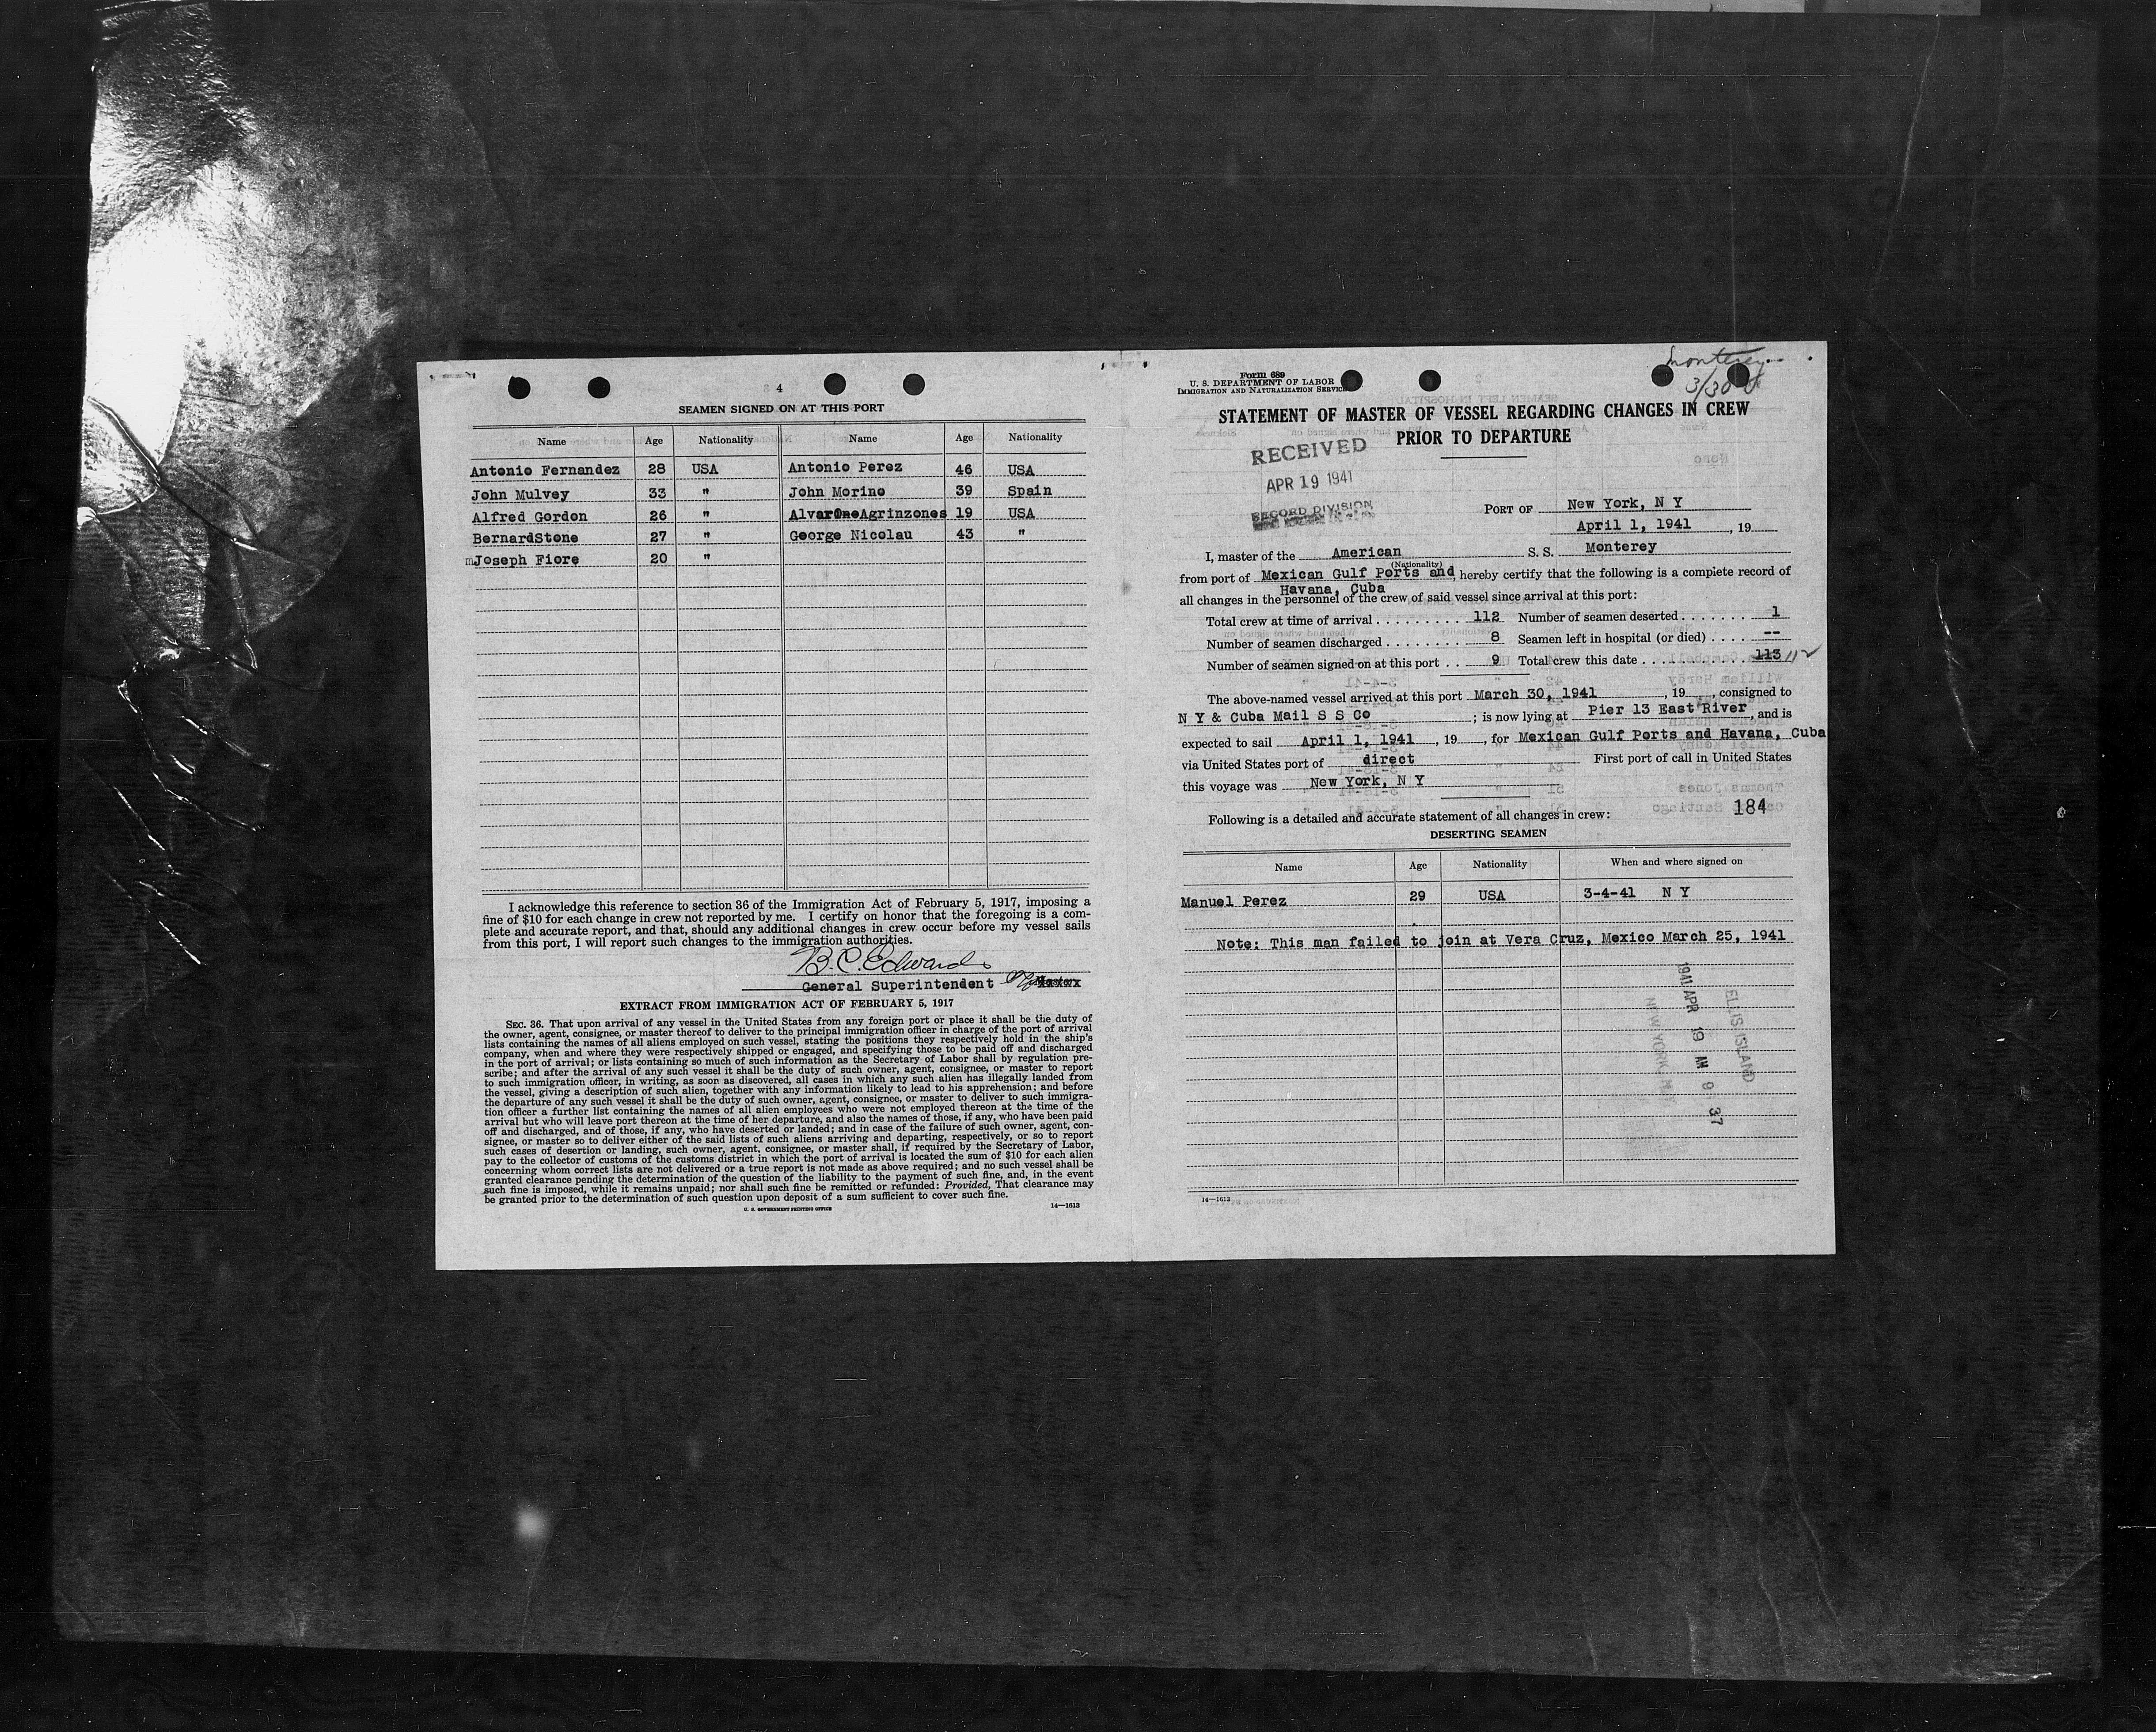 4
SEAMEN SIGNED ON AT THIS PORT
Name Age Nationality Name Age Nationality
Antonio Fernandez 28 USA Antonio Perez 46 USA
John Mulvey 33 " John Morino 39 Spain
Alfred Gordon 26 " Agrinzones 19 USA
BernardStone 27 " George Nicolau 43 "
Joseph Fiore 20 "
I acknowledge this reference to section 36 of the Immigration Act of February 5, 1917, imposing a
fine of $10 for each change in crew not reported by me. I certify on honor that the foregoing is a com-
plete and accurate report, and that, should any additional changes in crew occur before my vessel sails
from this port, I will report such changes to the immigration authorities.
B. C. Edwards
General Superintendent
EXTRACT FROM IMMIGRATION ACT OF FEBRUARY 5, 1917
SEC. 36. That upon arrival of any vessel in the United States from any foreign port or place it shall be the duty of
the owner, agent, consignee, or master thereof to deliver to the principal immigration officer in charge of the port of arrival
lists containing the names of all aliens employed on such vessel, stating the positions they respectively hold in the ship's
company, when and where they were respectively shipped or engaged, and specifying those to be paid off and discharged
in the port of arrival; or lists containing so much of such information as the Secretary of Labor shall by regulation pre-
scribe; and after the arrival of any such vessel it shall be the duty of such owner, agent, consignee, or master to report
to such immigration officer, in writing, as soon as discovered, all cases in which any such alien has illegally landed from
the vessel, giving a description of such alien, together with any information likely to lead to his apprehension; and before
the departure of any such vessel it shall be the duty of such owner, agent, consignee, or master to deliver to such immigra-
tion officer a further list containing the names of all alien employees who were not employed thereon at the time of the
arrival but who will leave port thereon at the time of her departure, and also the names of those, if any, who have been paid
off and discharged, and of those, if any, who have deserted or landed; and in case of the failure of such owner, agent, con-
signee, or master so to deliver either of the said lists of such aliens arriving and departing, respectively, or so to report
such cases of desertion or landing, such owner, agent, consignee, or master shall, if required by the Secretary of Labor,
pay to the collector of customs of the customs district in which the port of arrival is located the sum of $10 for each alien
concerning whom correct lists are not delivered or a true report is not made as above required; and no such vessel shall be
granted clearance pending the determination of the question of the liability to the payment of such fine, and, in the event
such fine is imposed, while it remains unpaid; nor shall such fine be remitted or refunded: Provided, That clearance may
be granted prior to the determination of such question upon deposit of a sum sufficient to cover such fine.
U. S. GOVERNMENT PRINTING OFFICE 14—1613
Monterey
3/30
Form 689
U. S. DEPARTMENT OF LABOR
IMMIGRATION AND NATURALIZATION SERVICE
STATEMENT OF MASTER OF VESSEL REGARDING CHANGES IN CREW
PRIOR TO DEPARTURE
RECEIVED
APR 19 1941
RECORD DIVISION
PORT OF New York, N Y
April 1, 1941, 19
I, master of the American S. S. Monterey
(Nationality)
from port of Mexican Gulf Ports and, hereby certify that the following is a complete record of
Havana, Cuba
all changes in the personnel of the crew of said vessel since arrival at this port:
Total crew at time of arrival . . . . . . . . . 112 Number of seamen deserted . . . . . . . 1
Number of seamen discharged . . . . . . . . 8 Seamen left in hospital (or died) . . . . --
Number of seamen signed on at this port . . 9 Total crew this date . . . . . . . . . . . 113 112
The above-named vessel arrived at this port March 30, 1941, 19, consigned to
N Y & Cuba Mail S S Co; is now lying at Pier 13 East River, and is
expected to sail April 1, 1941, 19, for Mexican Gulf Ports and Havana, Cuba
via United States port of direct First port of call in United States
this voyage was New York, N Y
184
Following is a detailed and accurate statement of all changes in crew:
DESERTING SEAMEN
Name Age Nationality When and where signed on
Manuel Perez 29 USA 3-4-41 N Y
Note: This man failed to join at Vera Cruz, Mexico March 25, 1941
ELLIS ISLAND
1941 APR 19 AM 9 37
NEW YORK
14—1613